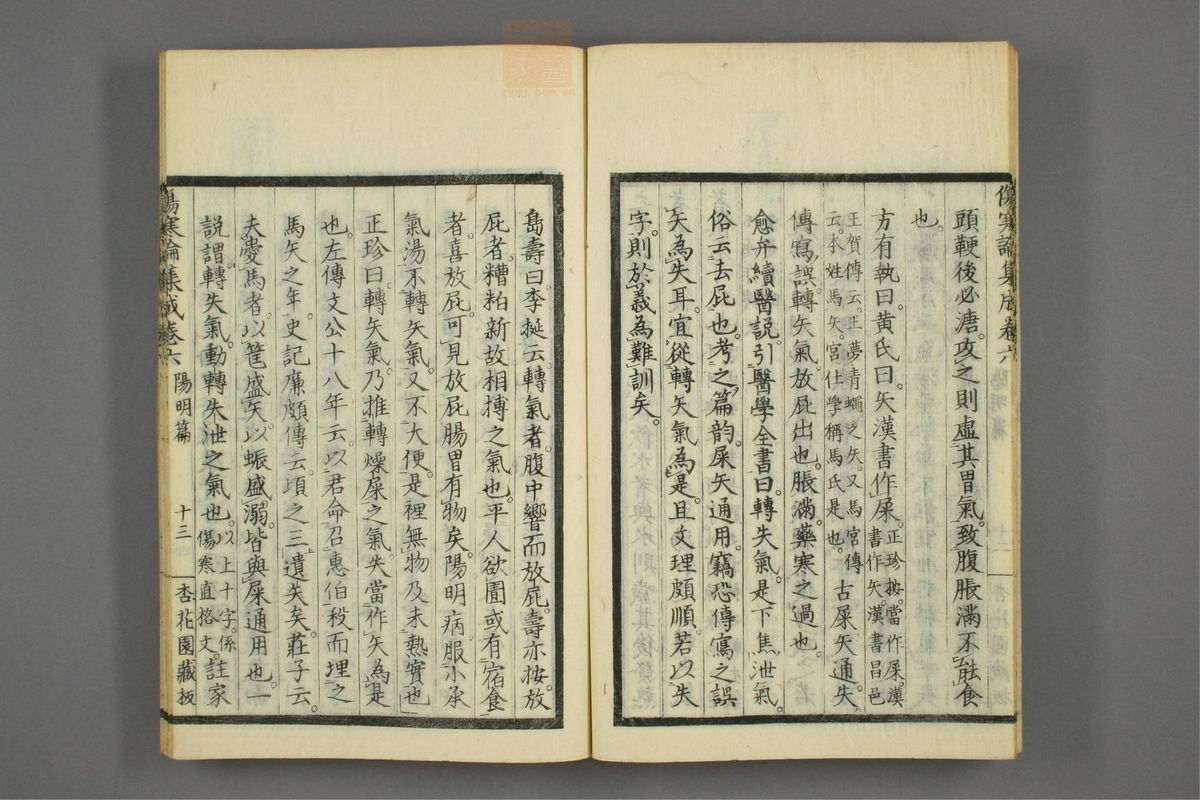 傷寒論集成卷六
頭鞕後必溏攻之則虛其胃氣致腹脹滿不能食
也
方有執曰黃氏曰矢漢書作屎正珍按當作屎漢書作矢漢書昌邑
王賀傳云王夢青蠅之矢又馬宮傳云本姓馬矢宮仕學稱馬氏是也古屎矢通失
傳寫誤轉矢氣放屁出也脹滿藥寒之過也
愈弁續醫說引醫學全書曰轉失氣是下焦泄氣
俗云去屁也考之篇韵屎矢通用竊恐傳寫之誤
矢為失耳宜從轉矢氣為是且文理頗順若以失
字則於義為難訓矣
島壽曰李梴云轉氣者腹中響而放屁壽亦按放
屁者糟粕新故相摶之氣也平人欲圊或有宿食
者喜放屁可見放屁腸胃有物矣陽明病服小承
氣湯不轉矢氣又不大便是裡無物及未熱實也
正珍曰轉矢氣乃推轉燥屎之氣失當作矢為是
也左傳文公十八年云以君命召惠伯殺而埋之
馬矢之年史記廉頗傳云項之三遺矢矣莊子云
夫愛馬者以筐盛矢以蜄盛溺皆與屎通用也一
說謂轉失氣動轉失泄之氣也以上十字係傷寒直格文註家
傷寒論集成卷六 陽明篇 十三 杏花園藏板